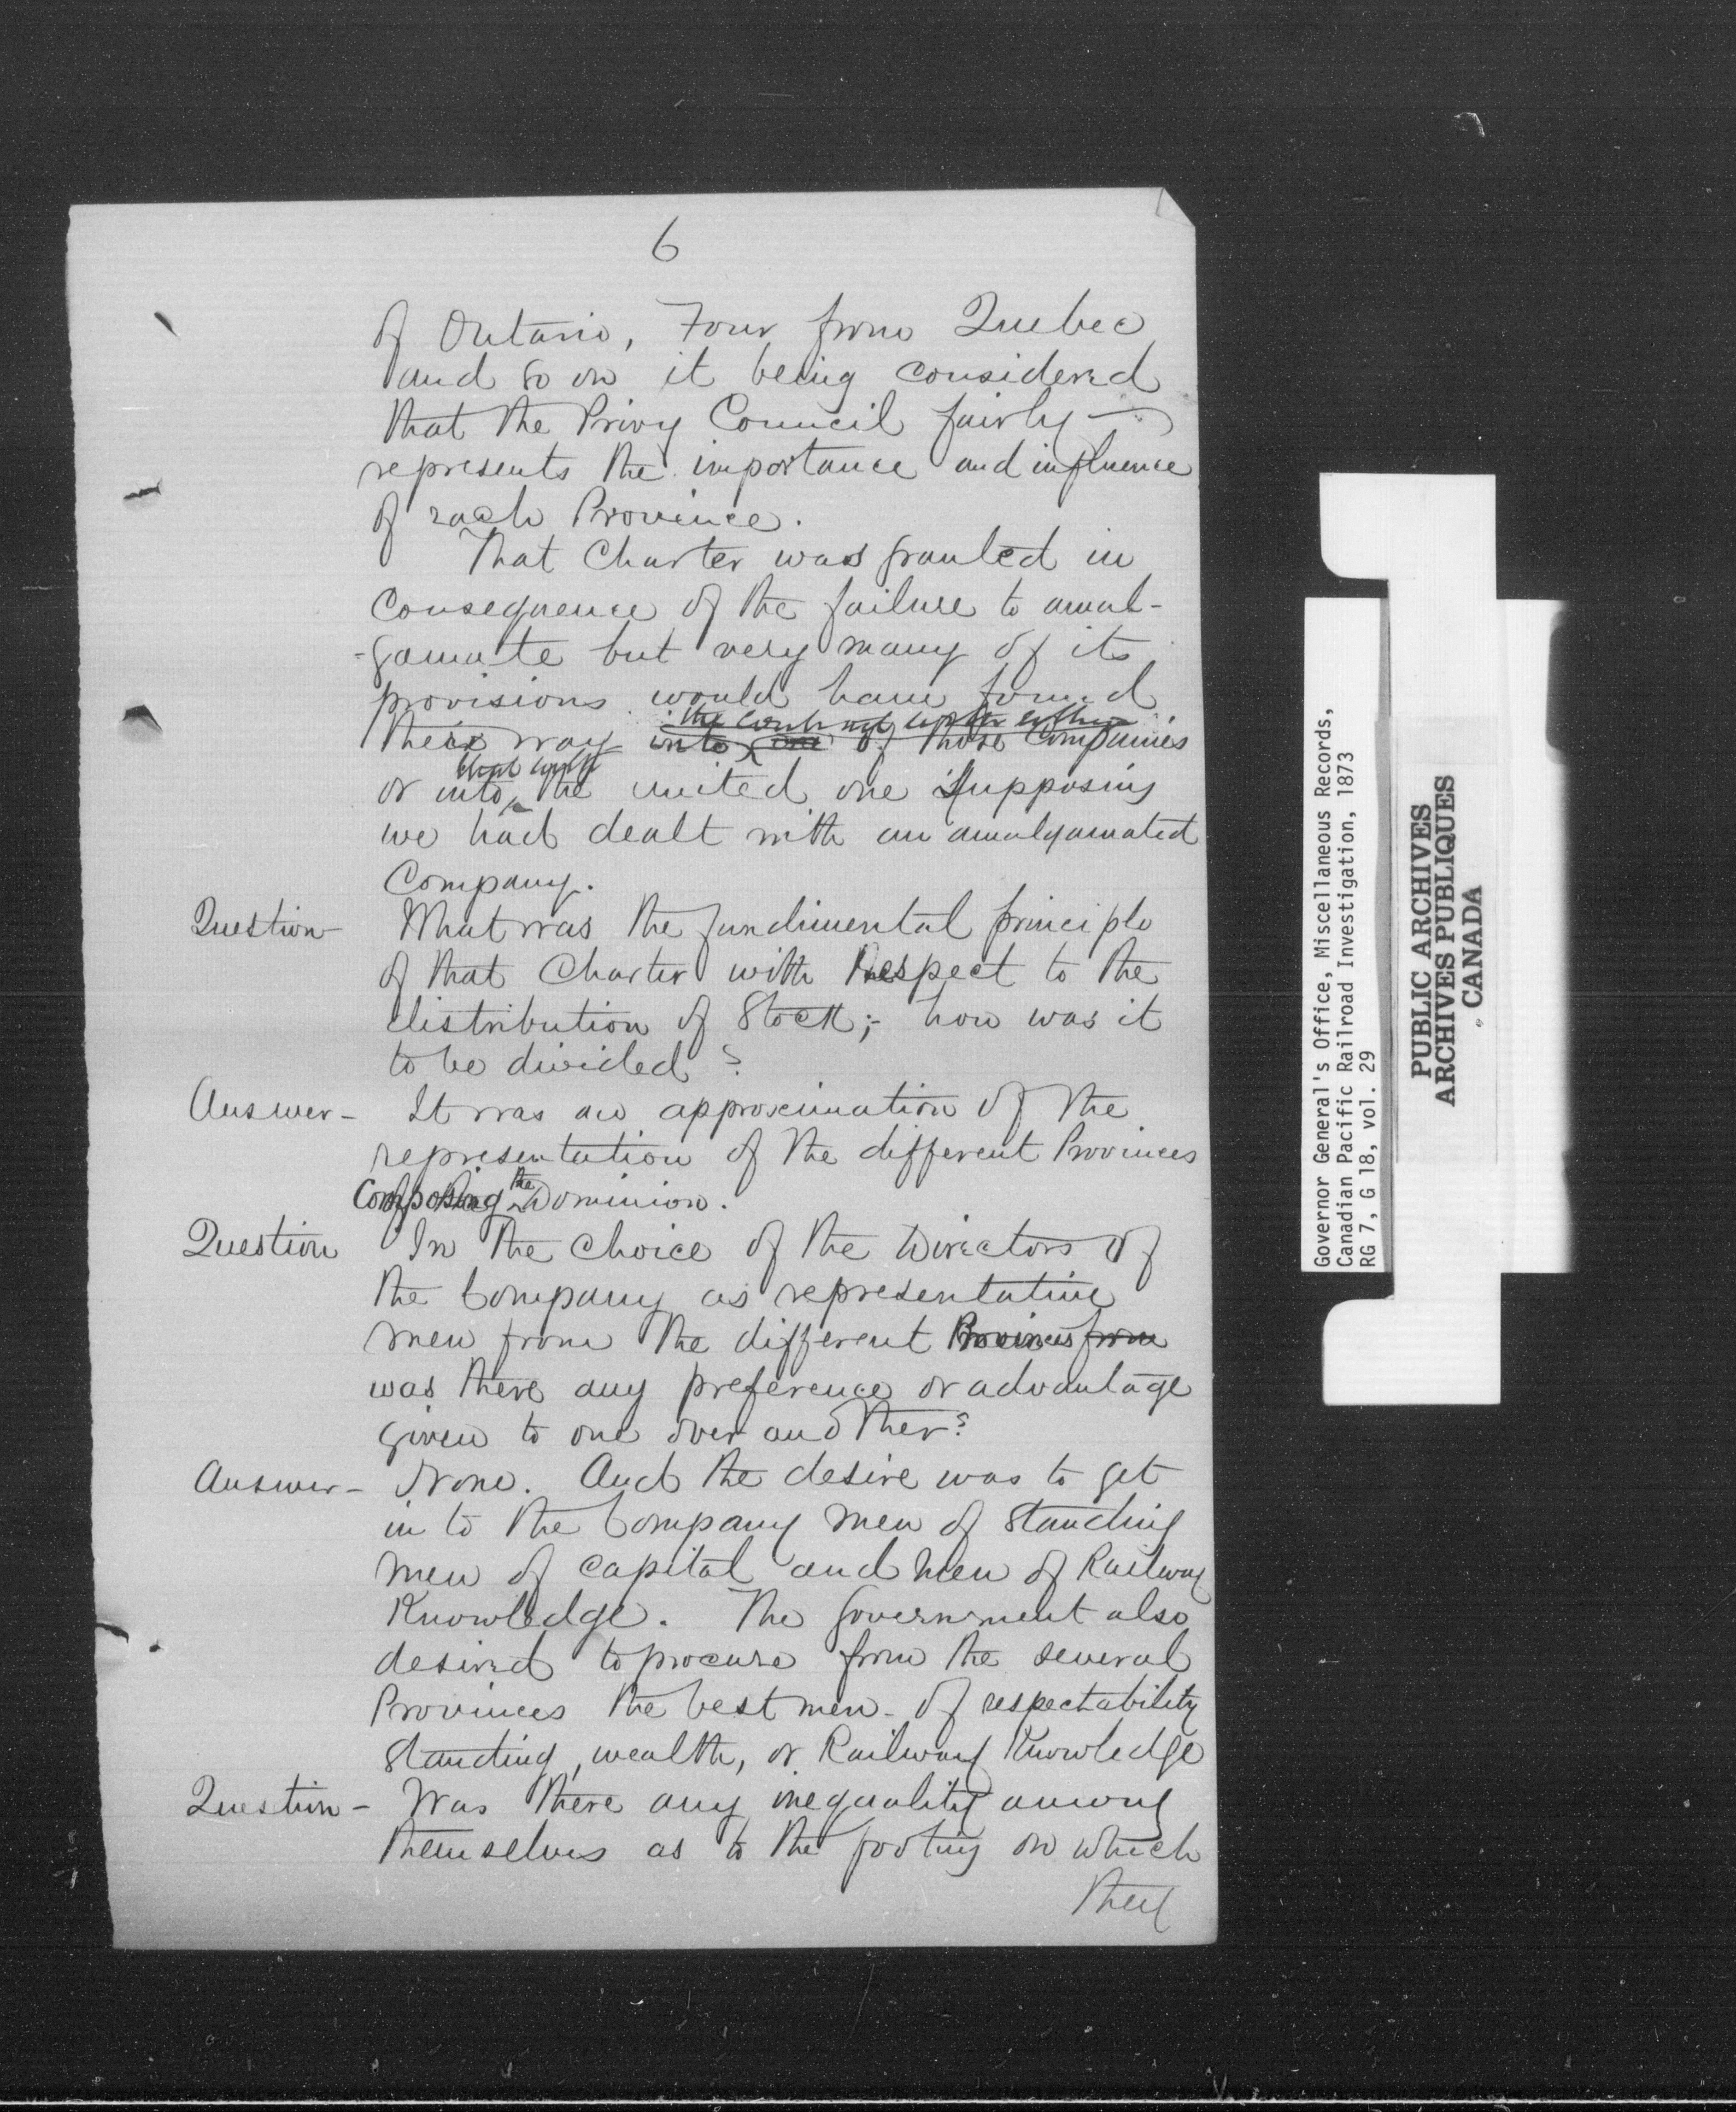 6
of Ontario, Four from Quebec
and so on it being considered
that the Privy Council fairly
represents the importance and influence
of each Province.
That Charter was granted in
Consequence of the failure to amal-
-gamate but very many of its
provisions would have found
the contract with either
their way into one of those Companies
that with
or into the united one Supposing
we had dealt with an amalgamated
Company.
Question What was the fundimental principle
of that Charter with Respect to the
distribution of Stock;- how was it
to be divided?
Answer- It was an approximation of the
representation of the different Provinces
Composing the Dominion.
Question In the choice of the Directors of
the Company as representative
men from the different Provinces from
was there any preference or advantage
given to one over another?
Answer- None. And the desire was to get
in to the Company men of Standing
men of capital and Men of Railway
Knowledge. The Government also
desired to procure from the several
Provinces the best men- of respectability
Standing, wealth, or Railway Knowledge
Question- Was there any inequality among
themselves as to the footing on which
they
Governor General's Office, Miscellaneous Records,
Canadian Pacific Railroad Investigation, 1873
RG 7, G 18, vol. 29
PUBLIC ARCHIVES
ARCHIVES PUBLIQUES
CANADA